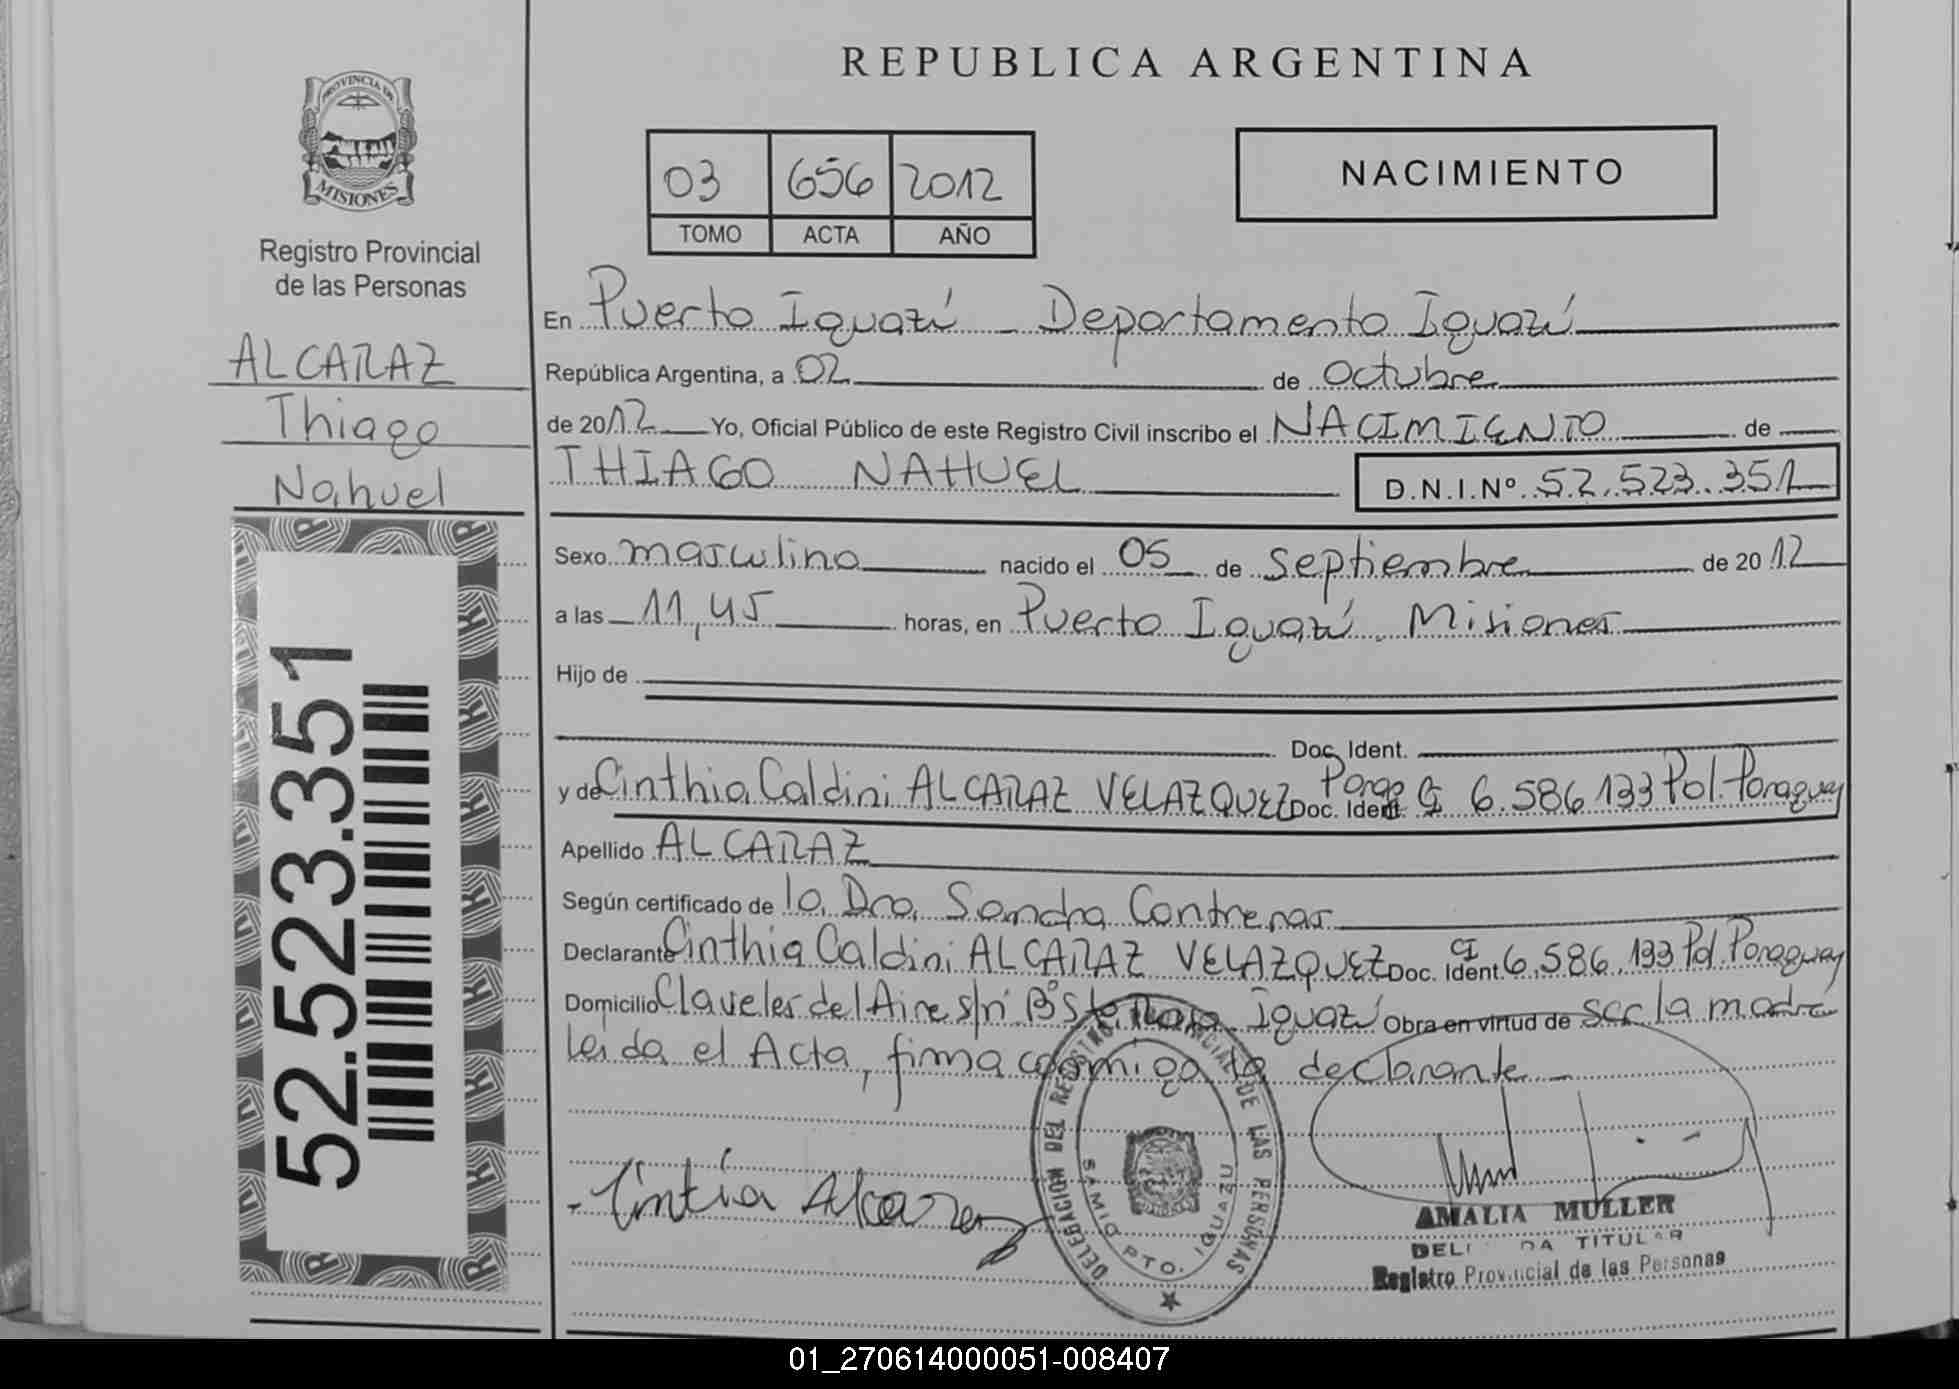 REPUBLICA ARGENTINA
PROVINCIA DE
MISIONES
Registro Provincial
de las Personas
ALCARAZ
Thiago
Nahuel
52.523.351
03 656 2012
TOMO ACTA AÑO
NACIMIENTO
En Puerto Iguazú - Departamento Iguazú
República Argentina, a 02 de Octubre
de 2012 Yo, Oficial Público de este Registro Civil inscribo el NACIMIENTO de
THIAGO NAHUEL D.N.I.Nº 52.523.351
Sexo masculino nacido el 05 de septiembre de 2012
a las 11,45 horas, en Puerto Iguazú - Misiones
Hijo de
Doc. Ident.
y de Cinthia Caldini ALCARAZ VELAZQUEZ Doc. Ident. CI 6.586.133 Pol. Paraguay
Apellido ALCARAZ
Según certificado de la Dra. Sandra Contreras
Declarante Cinthia Caldini ALCARAZ VELAZQUEZ Doc. Ident. CI 6.586.133 Pol. Paraguay
Domicilio Claveles del Aire s/nº Bº Sta Rosa Iguazú Obra en virtud de ser la madre
leida el Acta, firma conmigo la declarante
Cintia Alcaraz
DELEGACION DEL REGISTRO PROVINCIAL DE LAS PERSONAS
PTO. IGUAZU
AMALIA MULLER
TITULAR
Registro Provincial de las Personas
01_270614000051-008407